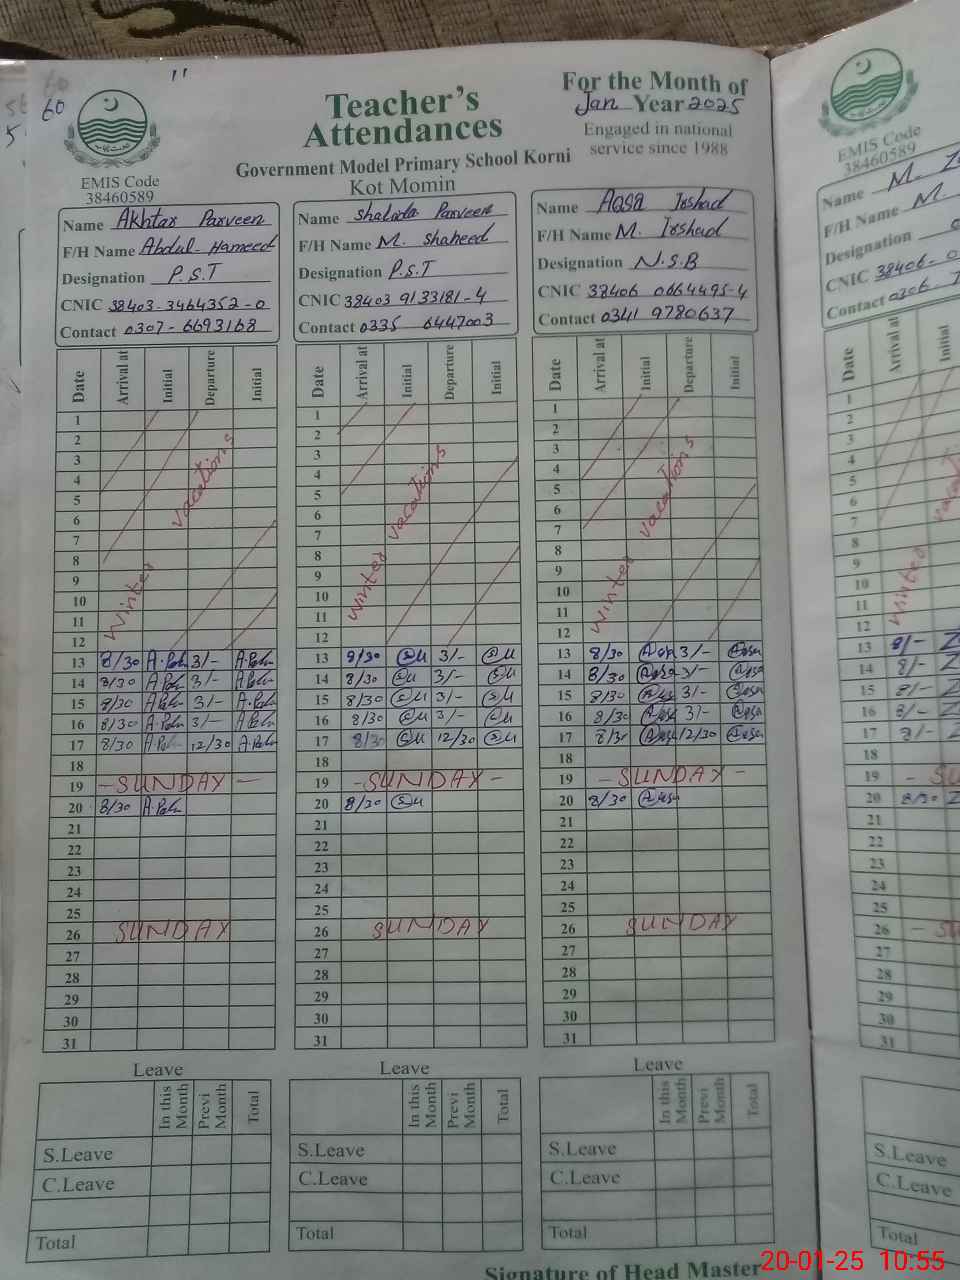 60
Teacher's
Attendances
For the Month of
Jan Year 2025
Engaged in national
service since 1988
Government Model Primary School Korni
Kot Momin
EMIS Code
38460589
Name Akhtar Parveen
F/H Name Abdul-Hameed
Designation P.S.T
CNIC 38403-3464352-0
Contact 0307-6693168
Date Arrival at Initial Departure Initial
1
2
3
4
5
6
7
8
9
10
11
12
Winter vacations
13 8/30 A.Palu 3/- A.Palu
14 8/30 A.Palu 3/- A.Palu
15 8/30 A.Palu 3/- A.Palu
16 8/30 A.Palu 3/- A.Palu
17 8/30 A.Palu 12/30 A.Palu
18
19 -SUNDAY-
20 8/30 A.Palu
21
22
23
24
25
26 SUNDAY
27
28
29
30
31
Leave
In this Month Previ Month Total
S.Leave
C.Leave
Total
Name Parveen
F/H Name M. Shaheed
Designation P.S.T
CNIC 38403 9133181-4
Contact 0335 6447003
Date Arrival at Initial Departure Initial
1
2
3
4
5
6
7
8
9
10
11
12
Winter vacations
13 8/30 3/-
14 8/30 3/-
15 8/30 3/-
16 8/30 3/-
17 8/30 12/30
18
19 -SUNDAY-
20 8/30
21
22
23
24
25
26 SUNDAY
27
28
29
30
31
Leave
In this Month Previ Month Total
S.Leave
C.Leave
Total
Name Aqsa Irshad
F/H Name M. Irshad
Designation N.S.B
CNIC 38406 0664495-4
Contact 0341 9780637
Date Arrival at Initial Departure Initial
1
2
3
4
5
6
7
8
9
10
11
12
Winter vacations
13 8/30 Aqsa 3/- Aqsa
14 8/30 Aqsa 3/- Aqsa
15 8/30 Aqsa 3/- Aqsa
16 8/30 Aqsa 3/- Aqsa
17 8/30 Aqsa 12/30 Aqsa
18
19 -SUNDAY-
20 8/30 Aqsa
21
22
23
24
25
26 SUNDAY
27
28
29
30
31
Leave
In this Month Previ Month Total
S.Leave
C.Leave
Total
Signature of Head Master
EMIS Code
38460589
Name M.
F/H Name M.
Designation
CNIC 38406-0
Contact 0306-
Date Arrival at Initial
1
2
3
4
5
6
7
8
9
10
11
12
Winter
13 8/-
14 8/-
15 8/-
16 8/-
17 8/-
18
19
20 8/30
21
22
23
24
25
26
27
28
29
30
31
S.Leave
C.Leave
Total
20-01-25 10:55